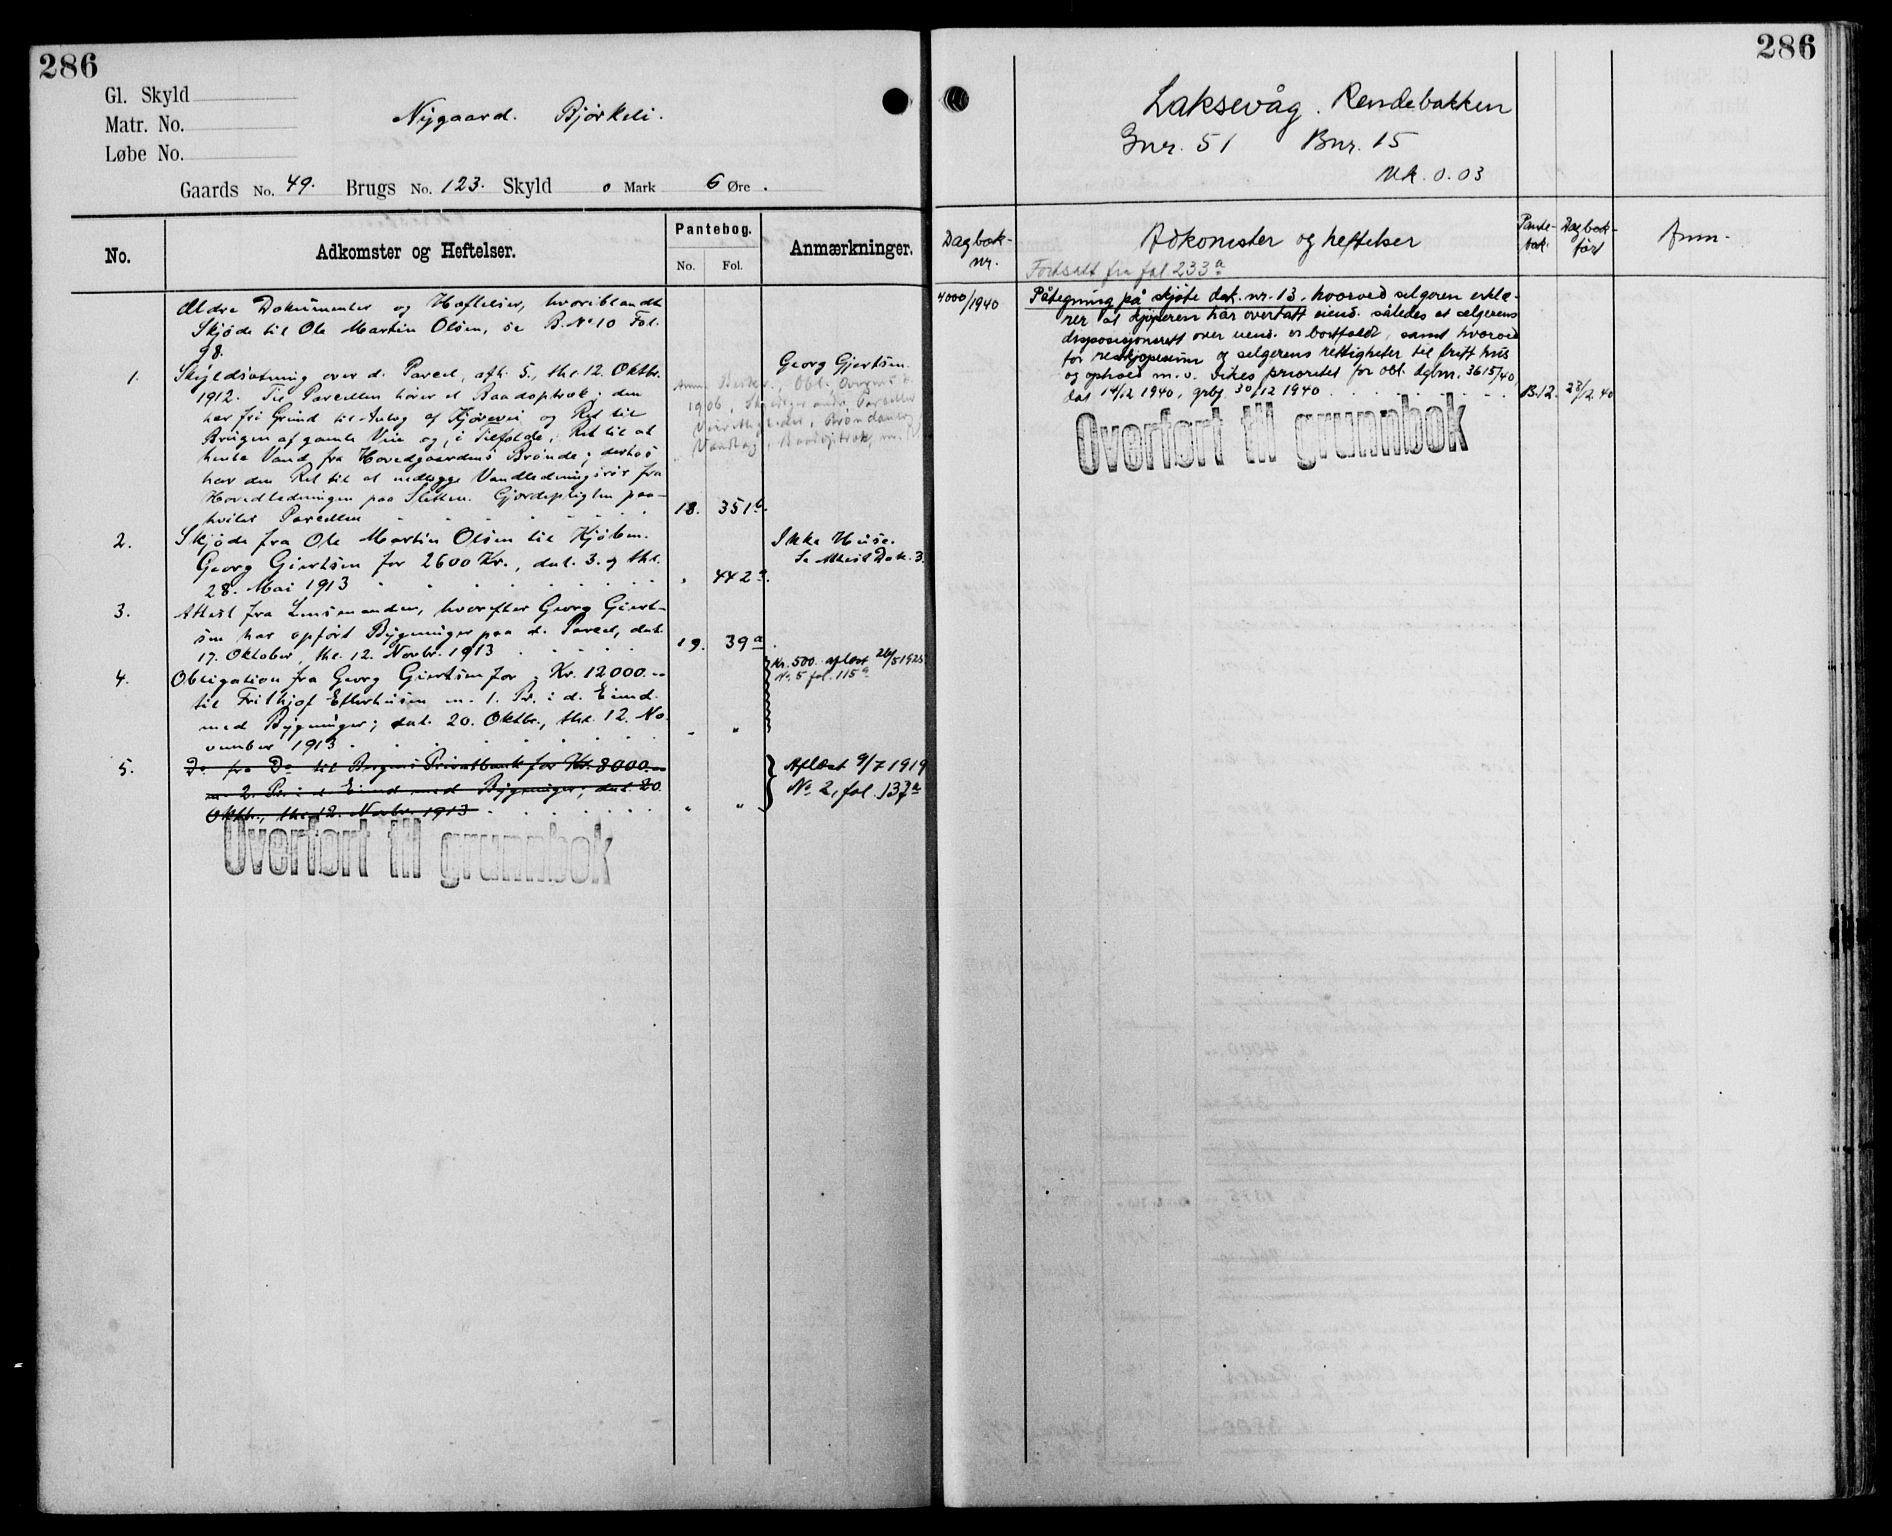 286
Gl. Skyld
Matr. No.
Løbe No.
Nygaard. Bjørkeli.
Gaards No. 49. Brugs No. 123. Skyld 0 Mark 6 Øre.
No.
Adkomster og Heftelser.
Pantebog.
No. Fol.
Anmærkninger.
Ældre Dokumenter og Heftelser, hvoriblandt
Skjøde til Ole Martin Olsen, se B. No 10 Fol.
98.
1. Skyldsætning over d. Parcel, afh. 5., thl. 12. Oktbr.
1912. Til Parcellen hører et Baadoptræk; den
har fri Grund til Anlæg af Kjørevei og Ret til
Brugen af gamle Veie og, i Tilfælde, Ret til at
hente Vand fra Hovedgaardens Brønde; derhos
har den Ret til at nedlægge Vandledningsrør fra
Hovedledningen paa Sletten. Gjerdepligten paa-
hviler Parcellen 18. 351b.
Georg Gjertsen.
Anm. Obl.
1906, andr. Parceller
Brøndanlæg
Baadoptræk m.
2. Skjøde fra Ole Martin Olsen til Kjøbm.
Georg Giertsen for 2600 Kr., dat. 3. og thl.
28. Mai 1913 " 442a.
Ikke Huse.
Se Attest Dok. 3.
3. Attest fra Lensmanden, hvorefter Georg Giert-
sen har opført Bygninger paa d. Parcel, dat.
17. Oktober, thl. 12. Novbr. 1913 19. 39a.
4. Obligation fra Georg Giertsen for Kr. 12000.-
til Frithjof Ellerhusen m. 1. Pr. i d. Eiend.
med Bygninger; dat. 20. Oktbr., thl. 12. No-
vember 1913 " "
Kr. 500. aflæst 26/5 1925
No. 5 fol. 115a
5. Do fra Do til Bergens Privatbank for Kr. 8000.-
m. 2. Pr. i d. Eiend. med Bygninger; dat. 20.
Oktbr., thl. 12. Novbr. 1913 " "
Aflæst 9/7 1919
No 2, fol. 137a
Overført til grunnbok
286
Laksevåg. Rendebakken
Gnr. 51 Bnr. 15
Mk. 0.03
Dagbok-
nr.
Adkomster og heftelser
Pante-
bok.
Dagbok-
ført
Anm.
Fortsatt fra fol 233a
4000/1940 Påtegning på skjøte dok. nr. 13, hvorved selgeren erklæ-
rer at kjøperen har overtatt eiend. således at selgerens
disposisjonsrett over eiend. er bortfaldt, samt hvorved
for restkjøpesum og selgerens rettigheter til fritt hus
og ophold m.v. vikes prioritet for obl. dgbnr. 3615/40,
dat 14/12 1940, grbg. 30/12 1940 B.12.
Overført til grunnbok